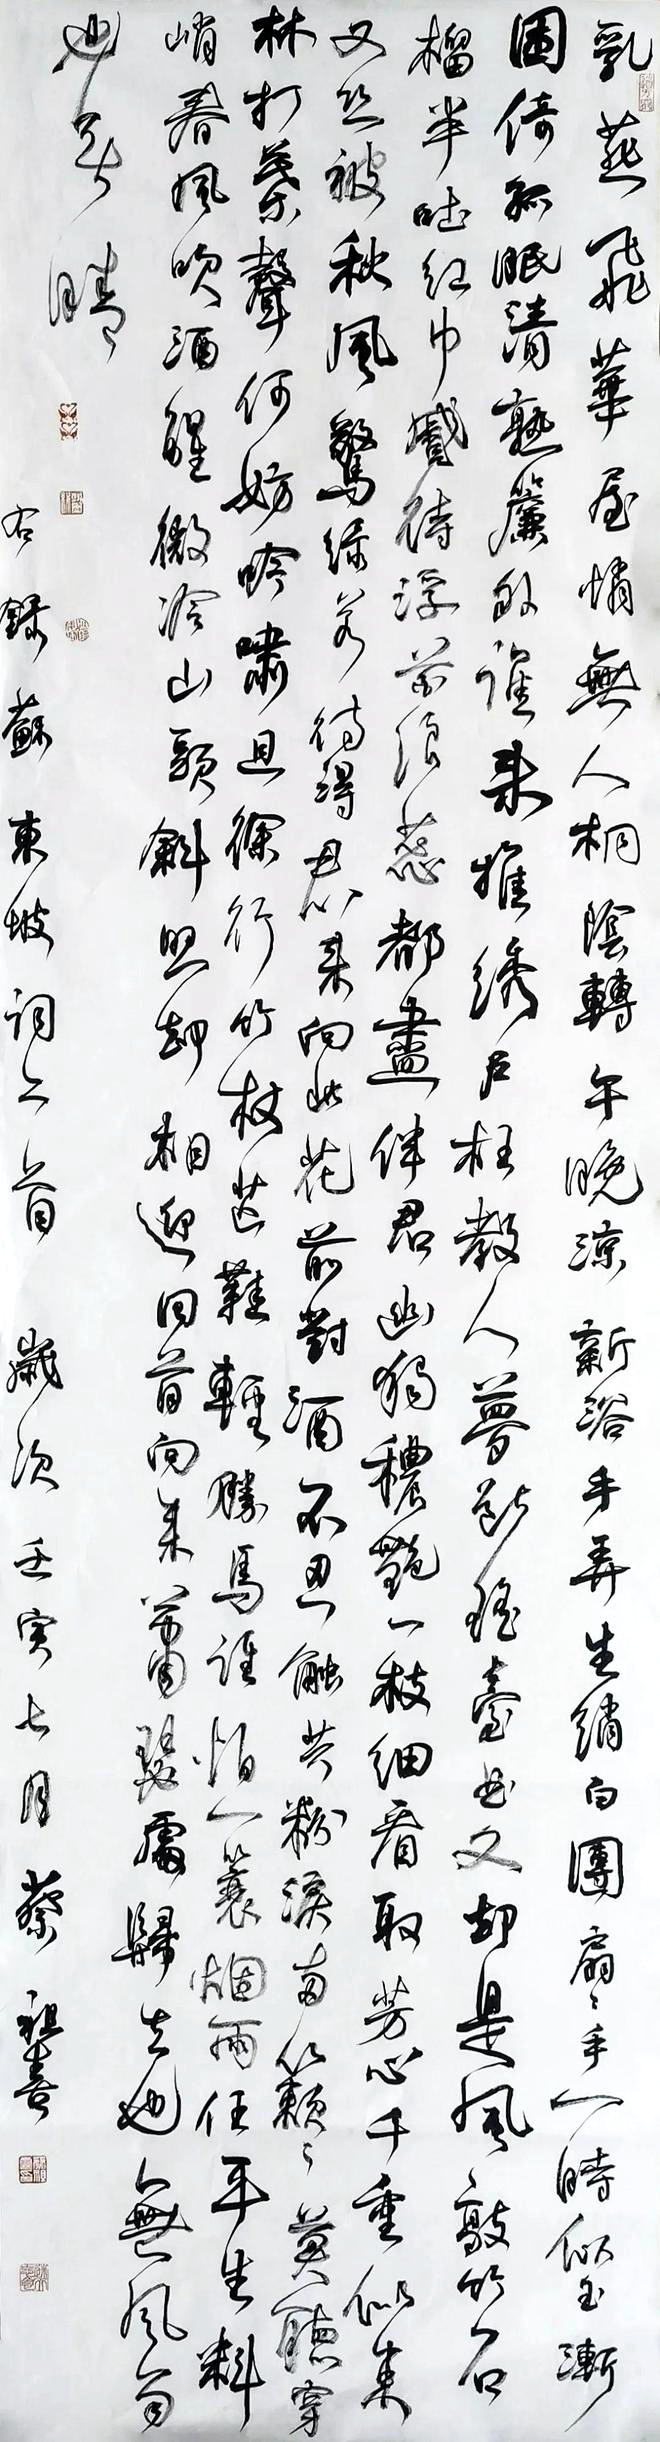 乳燕飛華屋悄無人桐陰轉午晚涼新浴手弄生綃白團扇〻手一時似玉漸
困倚孤眠清熟簾外誰來推綉户枉教人夢斷瑤臺曲又却是風敲竹石
榴半吐紅巾蹙待浮花浪蕊都盡伴君幽獨穠艷一枝細看取芳心千重似束
又恐被秋風驚綠若待得君來向此花前對酒不忍觸共粉淚兩簌〻莫聽穿
林打葉聲何妨吟嘯且徐行竹杖芒鞋輕勝馬誰怕一蓑烟雨任平生料
峭春風吹酒醒微冷山頭斜照却相迎回首向來蕭瑟處歸去也無風雨
也無晴
右錄蘇東坡詞二首 歲次壬寅七月蔡祖喜